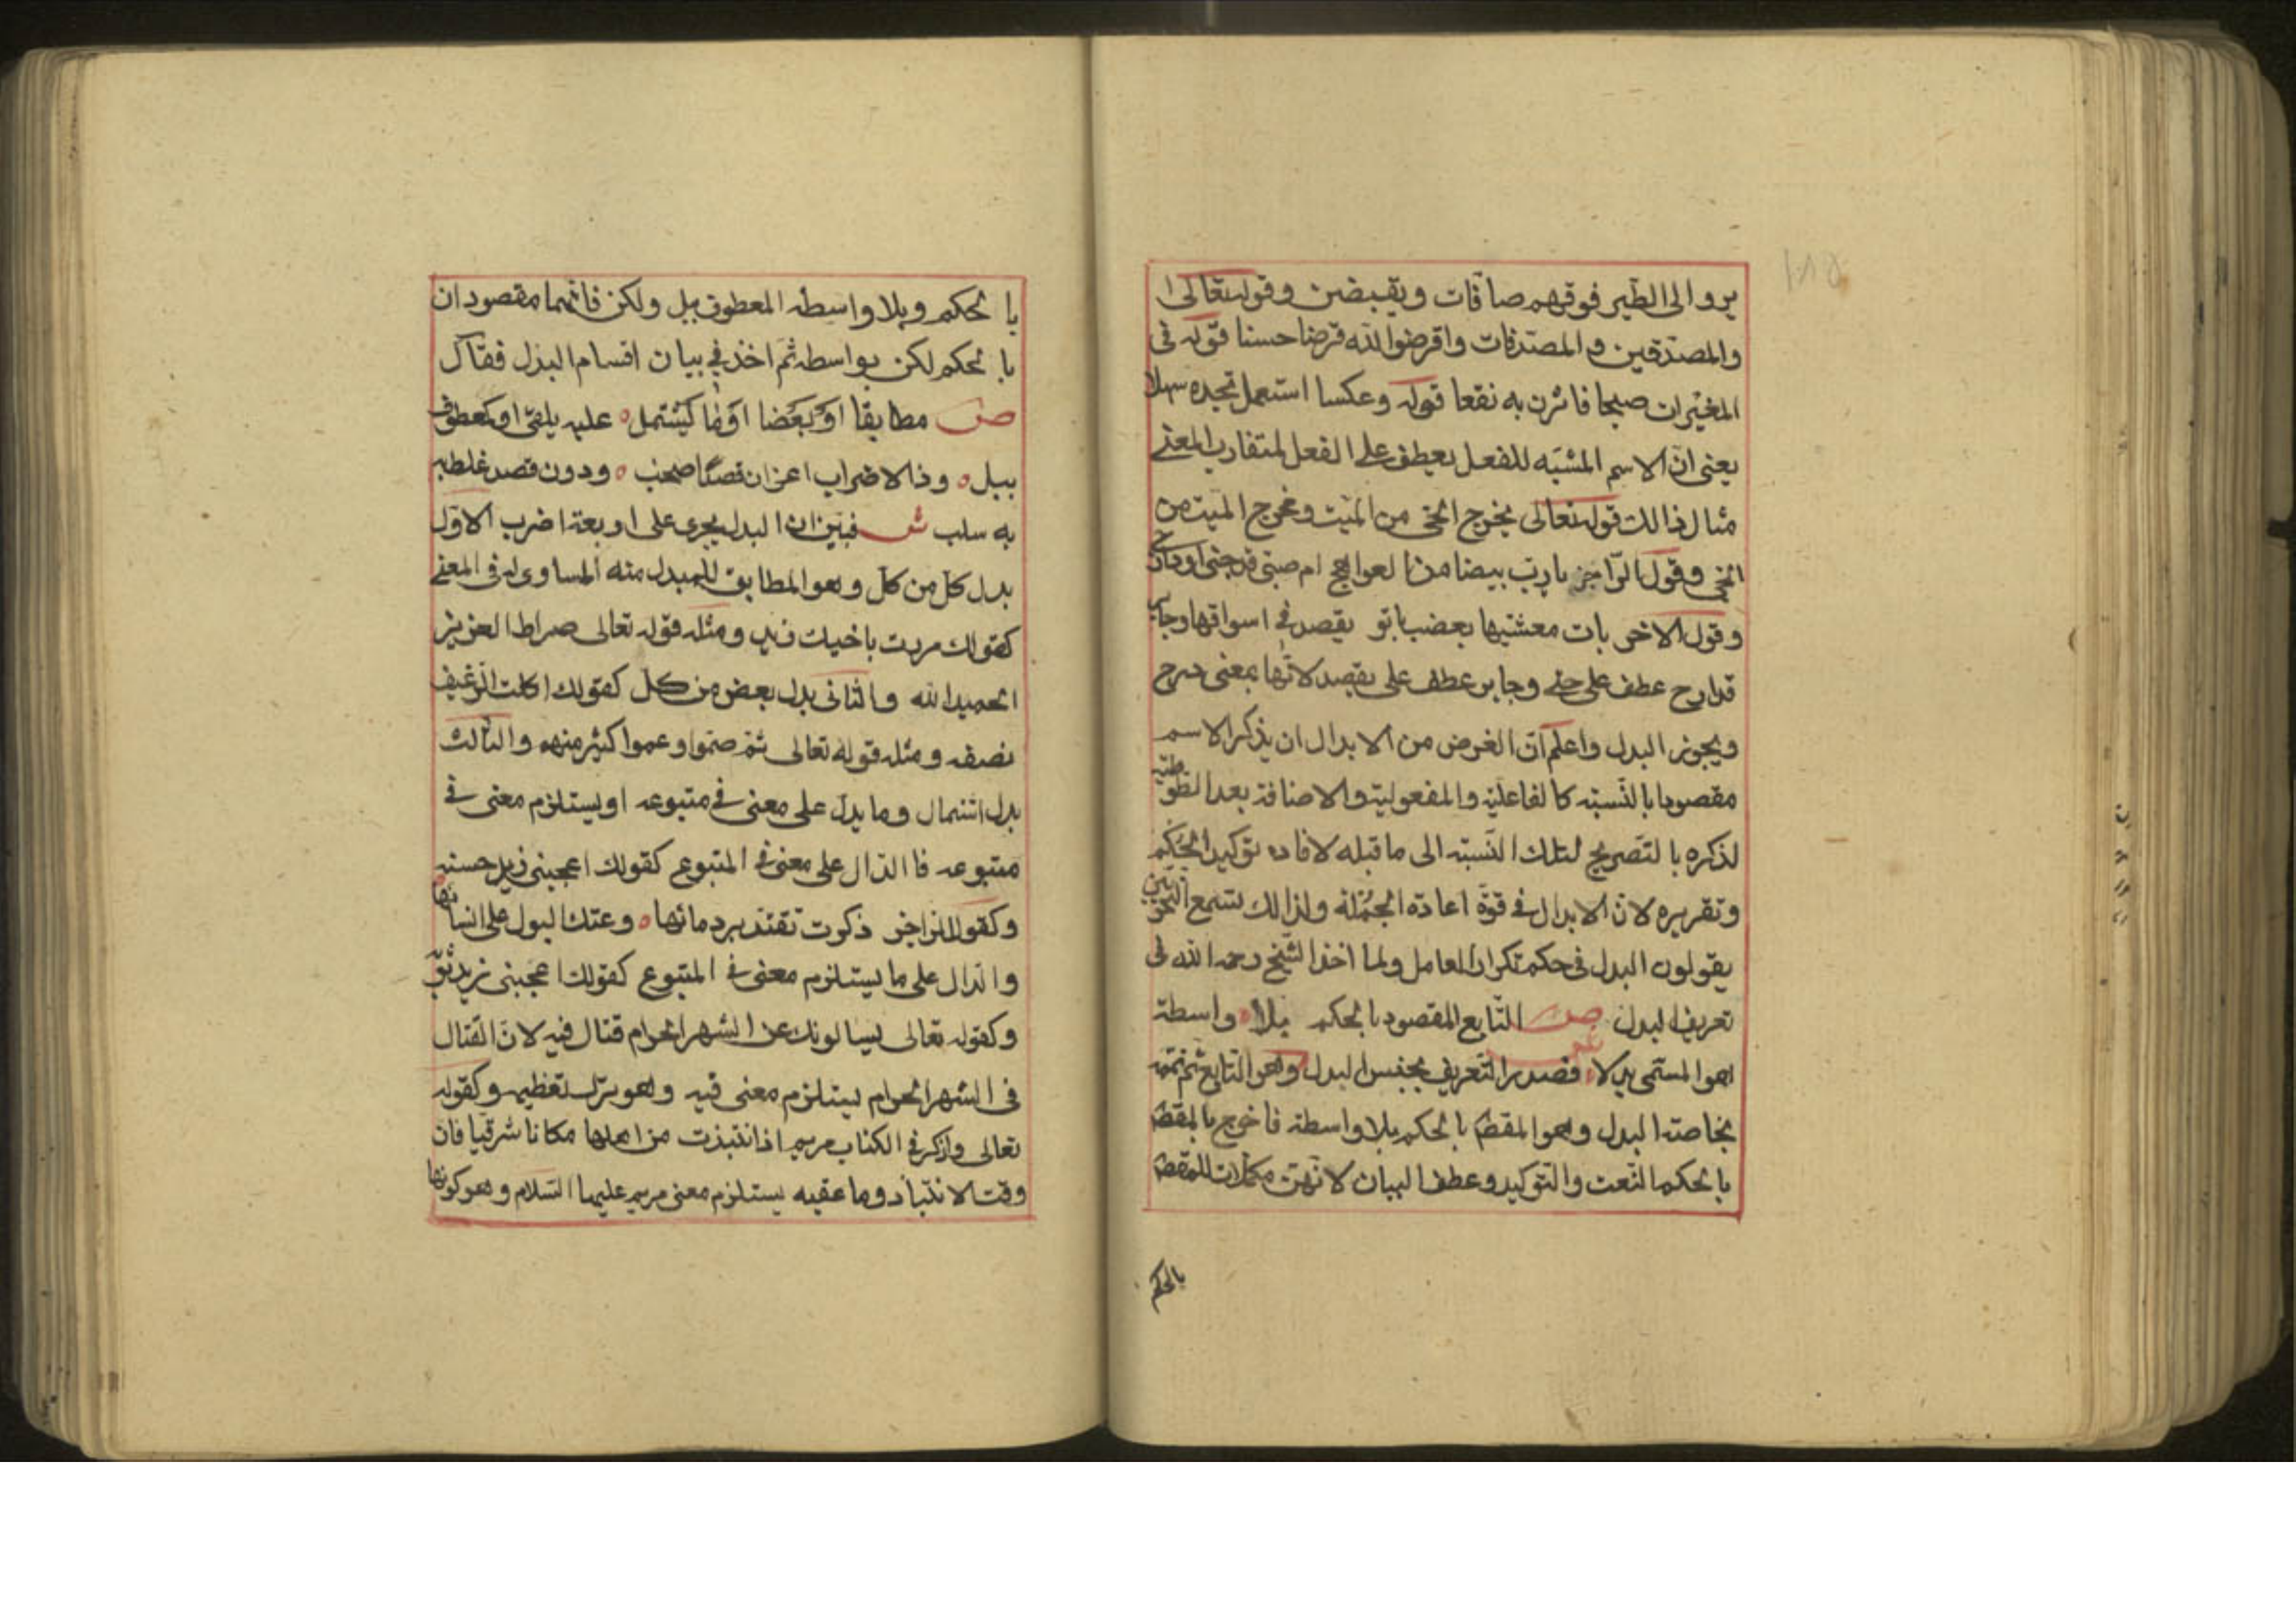 يروا الى الطير فوقهم صافات ويقبضن وقوله تعالى ا
والمصدقين والمصدقات واقرضوا الله قرضا حسنا قوله فى
المغيرات صبحا فاثرن به نقعا قوله وعكسا استعمل تجده سهلا
يعنى ان الاسم المشبه للفعل يعطف على الفعل لمتقارب المعنى
مثال ذالك قوله تعالى يخرج الحى من الميت ومخرج الميت من
الحى وقول الراجز يارب بيضا من العواهج ام صبى قد حبى اودارج
وقول الاخر بات معشيها بعضب باتر يقصد فى اسواقها وجاير
قدارج عطف على حبى وجاير عطف على يقصد لانها بمعنى درج
ويجوز البدل واعلم ان الغرض من الابدال ان يذكر الاسم
مقصودا بالنسبة كالفاعلية والمفعولية والاضافة بعد التوطية
لذكره بالتصريح لتلك النسبة الى ما قبله لافاده توكيد الحكم
وتقريره لان الابدال فى قوة اعادة الجملة ولذالك تسمع النحويين
يقولون البدل فى حكم تكرار العامل ولما اخذ الشيخ رحمه الله فى
تعريف البدل ص التابع المقصود بالحكم بلا واسطة
هو المسمى بدلا فصدر التعريف بجنس البدل وهو التابع ثم تممه
بخاصة البدل وهو المقصد بالحكم بلا واسطة فاخرج بالمقصد
بالحكم النعت والتوكيد وعطف البيان لانهن مكملات للمقصد
بالحكم
بالحكم وبلا واسطه المعطوف ببل ولكن فانهما مقصودان
بالحكم لكن بواسطه ثم اخذ فى بيان اقسام البدل فقال
ص مطابقا او بعضا او ما يشتمل عليه يلفى او كمعطوف
ببل وذا لاضراب اعز ان قصدا صحب ودون قصد غلط به
به سلب ش فبين ان البدل يجرى على اربعة اضرب الاول
بدل كل من كل وهو المطابق للمبدل منه المساوى له فى المعنى
كقولك مررت باخيك زيد ومثله قوله تعالى صراط العزيز
الحميد الله والثانى بدل بعض من كل كقولك اكلت الرغيف
نصفه ومثله قوله تعالى ثم صموا وعموا كثير منهم والثالث
بدل اشتمال وما يدل على معنى فى متبوعه او يستلزم معنى فى
متبوعه فا الدال على معنى فى المتبوع كقولك اعجبنى زيد حسنه
وكقول الراجز ذكرت تقتد برد مائها وعتك البول على انسائها
والدال على ما يستلزم معنى فى المتبوع كقولك اعجبنى زيد ثوبه
وكقوله تعالى يسالونك عن الشهر الحرام قتال فيه لان القتال
فى الشهر الحرام يستلزم معنى فيه وهو ترك تعظيمه وكقوله
تعالى واذكر فى الكتاب مريم اذ انتبذت من اهلها مكانا شرقيا فان
وقت الانتباذ وما عقبه يستلزم معنى مريم عليها السلام وهو كونها